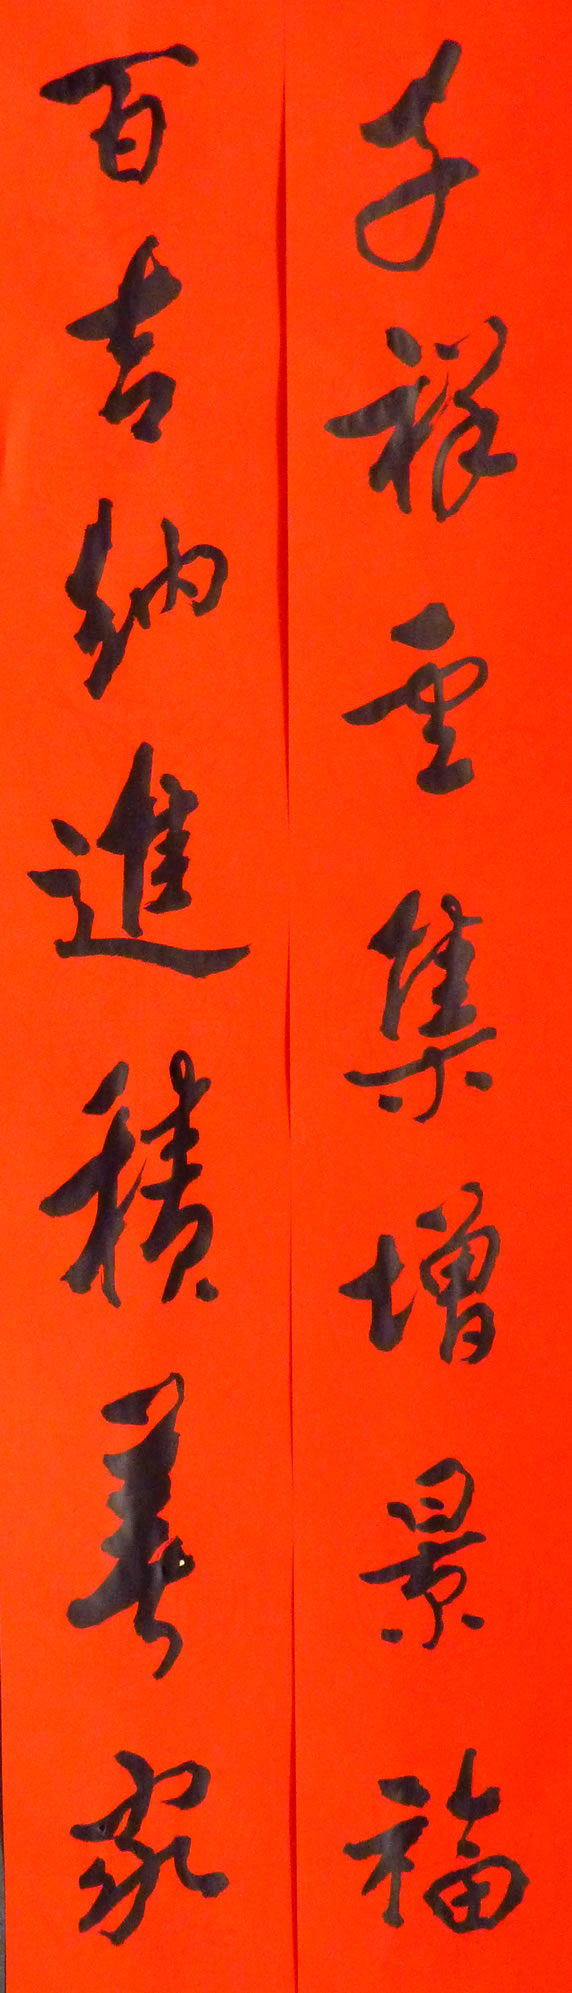 千祥雲集增景福
百吉納進積善家